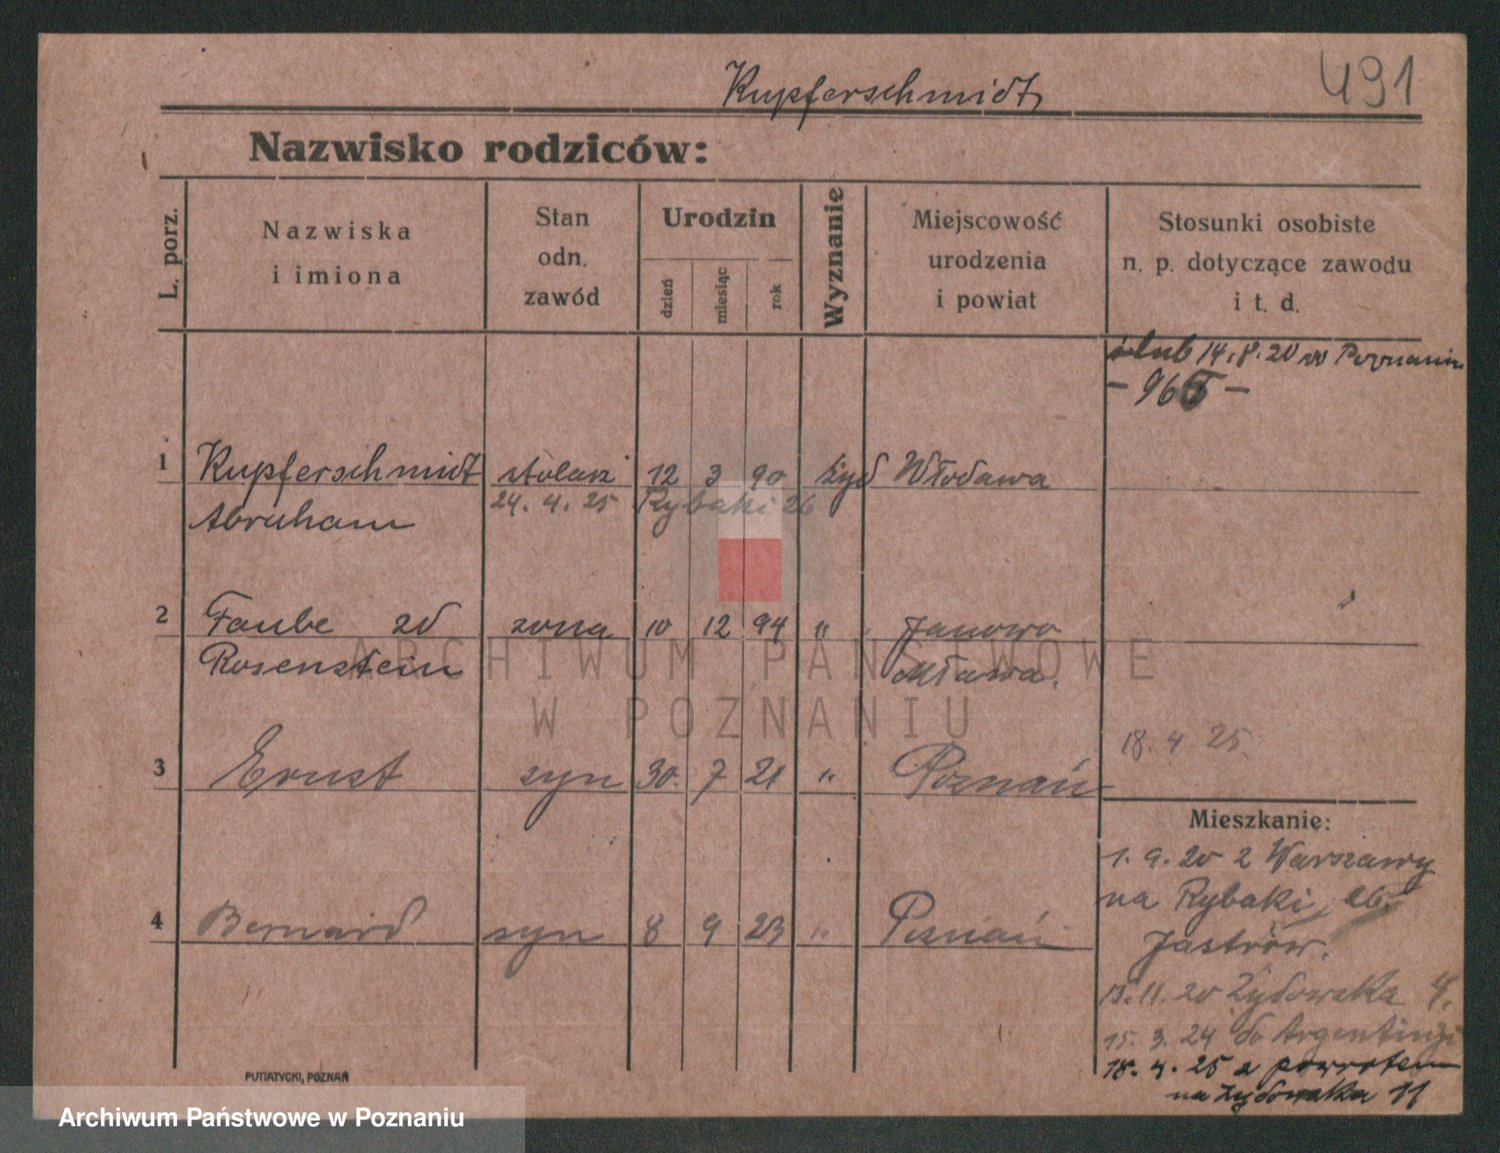 Kupferschmidt
491
Nazwisko rodziców:
L. porz.
Nazwiska
i imiona
Stan
odn.
zawód
Urodzin
dzień
miesiąc
rok
Wyznanie
Miejscowość
urodzenia
i powiat
Stosunki osobiste
n. p. dotyczące zawodu
i t. d.
ślub 14.8.20 w Poznaniu
1 Kupferschmidt stolarz 12 3 90 żyd Włodawa
Abraham 24. 4. 25 Rybaki 26
2 Taube zd żona 10 12 94 " Janowo
Rosenstein Mława.
18. 4 25.
3 Ernst syn 30. 7 21 " Poznań
Mieszkanie:
1. 9. 20 z Warszawy
na Rybaki, 26
Jastrów.
4 Bernard syn 8 9 23 " Poznań
13. 11. 20 Żydowska 4.
15. 3. 24 do Argentinji
18. 4. 25 z powrotem
na Żydowska 11
PUTIATYCKI, POZNAŃ
ARCHIWUM PAŃSTWOWE
W POZNANIU
Archiwum Państwowe w Poznaniu